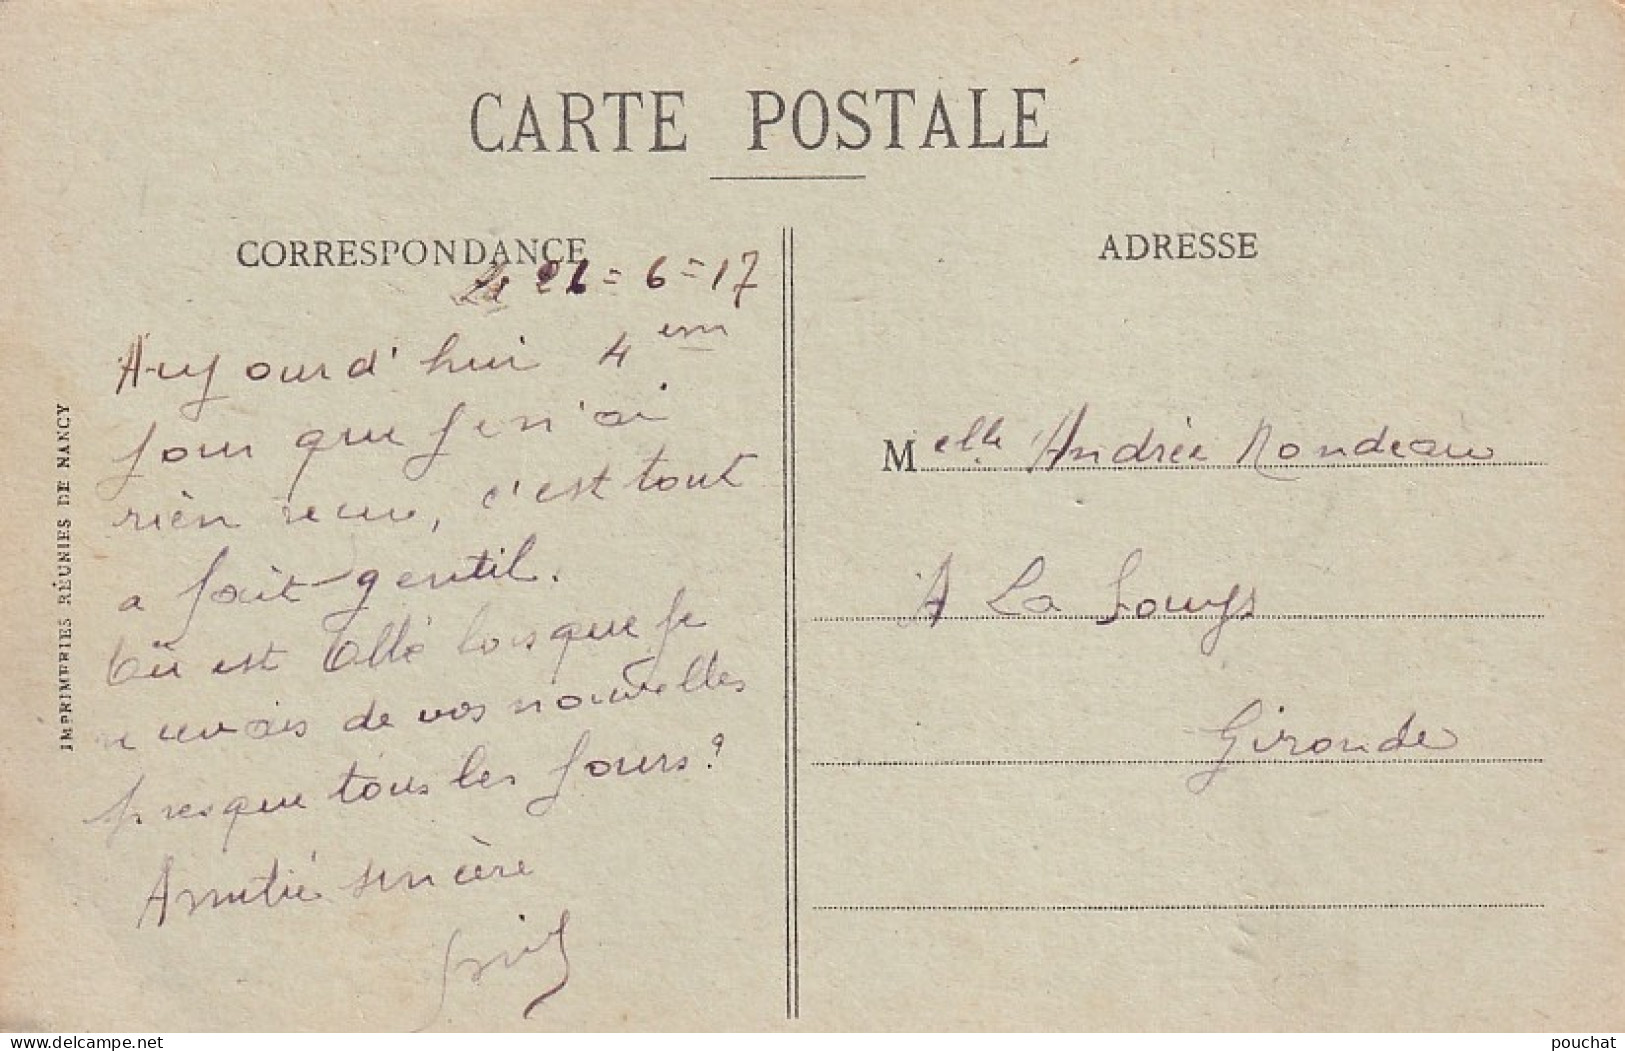 CARTE POSTALE
CORRESPONDANCE
ADRESSE
Le 26=6=17
Aujourd'hui 4em
jour que je n'ai
rien recu, c'est tout
a fait gentil.
Où est Allé lorsque je
recevais de vos nouvelles
presque tous les jours?
Amitié sincère
IMPRIMERIES RÉUNIES DE NANCY
Melle Andrée Rondeau
A La Souys
Gironde
www.delcampe.net
pouchat